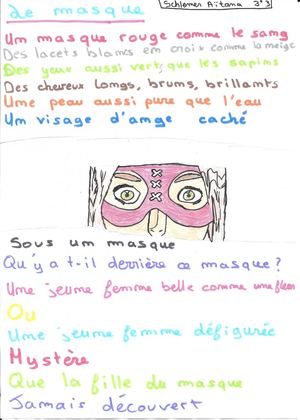 Le masque
Schlemer Aitana 3°3
Un masque rouge comme le sang
Des lacets blancs en croix comme la neige
Des yeux aussi verts que les sapins
Des cheveux longs, bruns, brillants
Une peau aussi pure que l'eau
Un visage d'ange caché
Sous un masque
Qu'y a-t-il derrière ce masque?
Une jeune femme belle comme une fleur
Ou
Une jeune femme défigurée
Mystère
Que la fille du masque
Jamais découvert